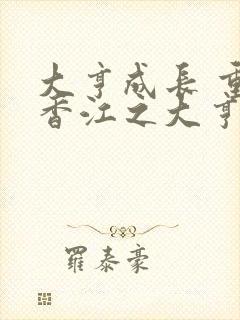 大亨成長 重
香江之大亨
羅泰豪